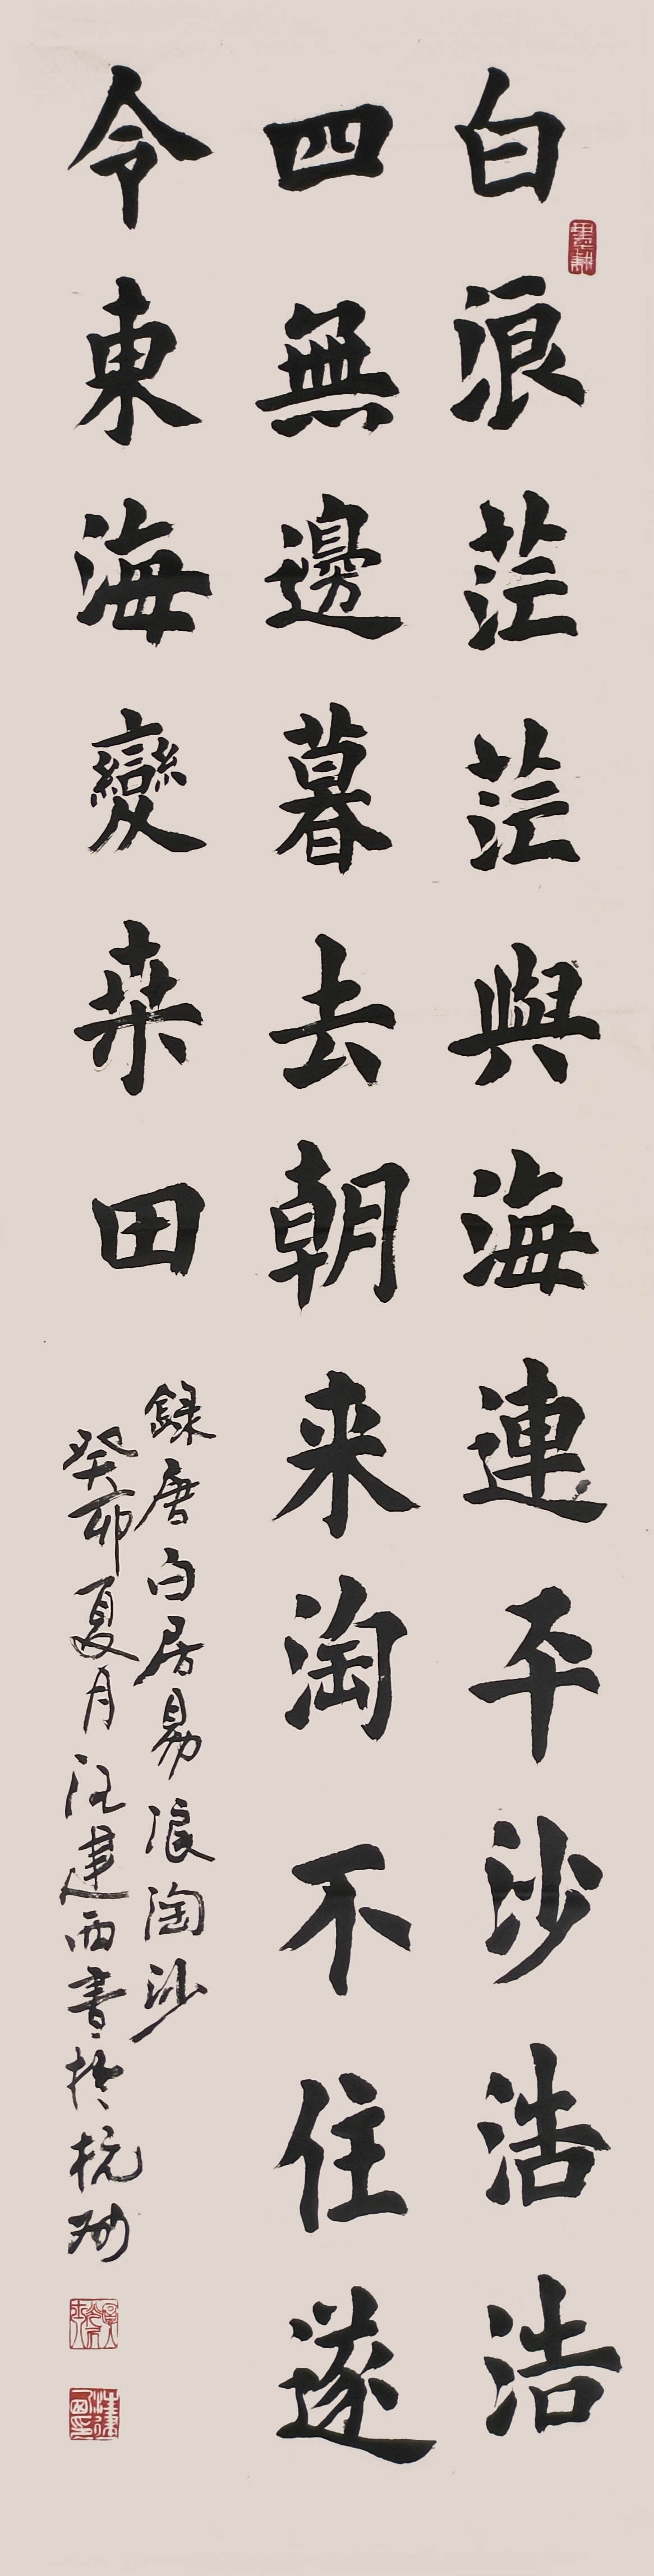 白浪茫茫與海連平沙浩浩
四無邊暮去朝来淘不住遂
令東海變桒田
録唐白居易浪淘沙
癸卯夏月汪建西書於杭州